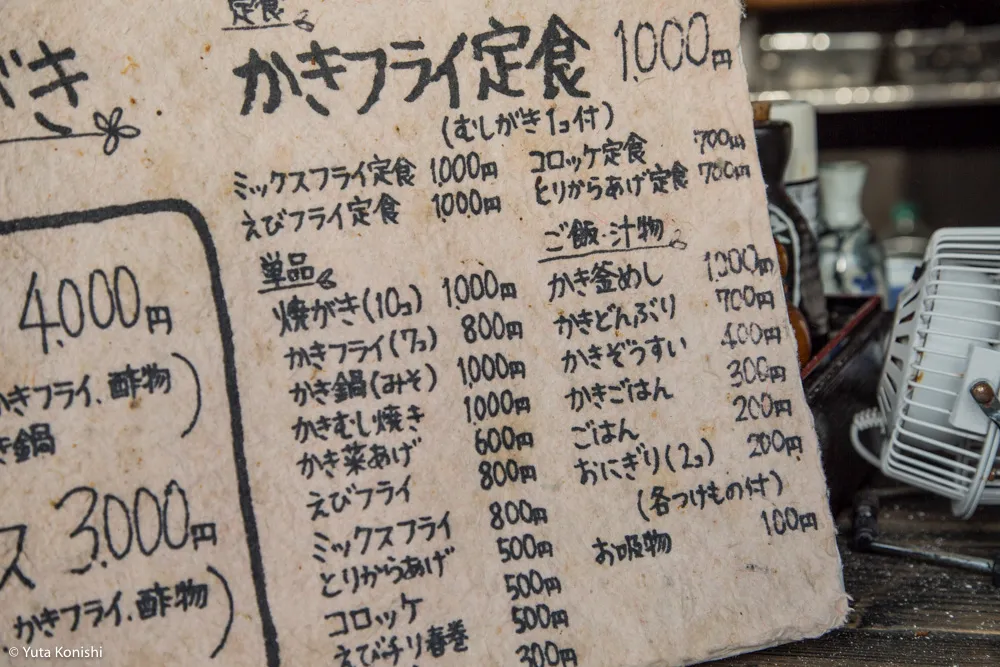 がき
4,000円
かきフライ、酢物
き鍋
ス 3,000円
かきフライ、酢物
定食
かきフライ定食 1,000円
(むしがき1コ付)
ミックスフライ定食 1,000円
えびフライ定食 1,000円
コロッケ定食 700円
とりからあげ定食 700円
単品
焼がき(10コ) 1,000円
かきフライ(7コ) 800円
かき鍋(みそ) 1,000円
かきむし焼き 1,000円
かき菜あげ 600円
えびフライ 800円
ミックスフライ 800円
とりからあげ 500円
コロッケ 500円
えびチリ春巻 500円
300円
ご飯・汁物
かき釜めし
かきどんぶり 700円
かきぞうすい 400円
かきごはん 300円
ごはん 200円
おにぎり(2コ) 200円
(各つけもの付)
お吸物 100円
© Yuta Konishi